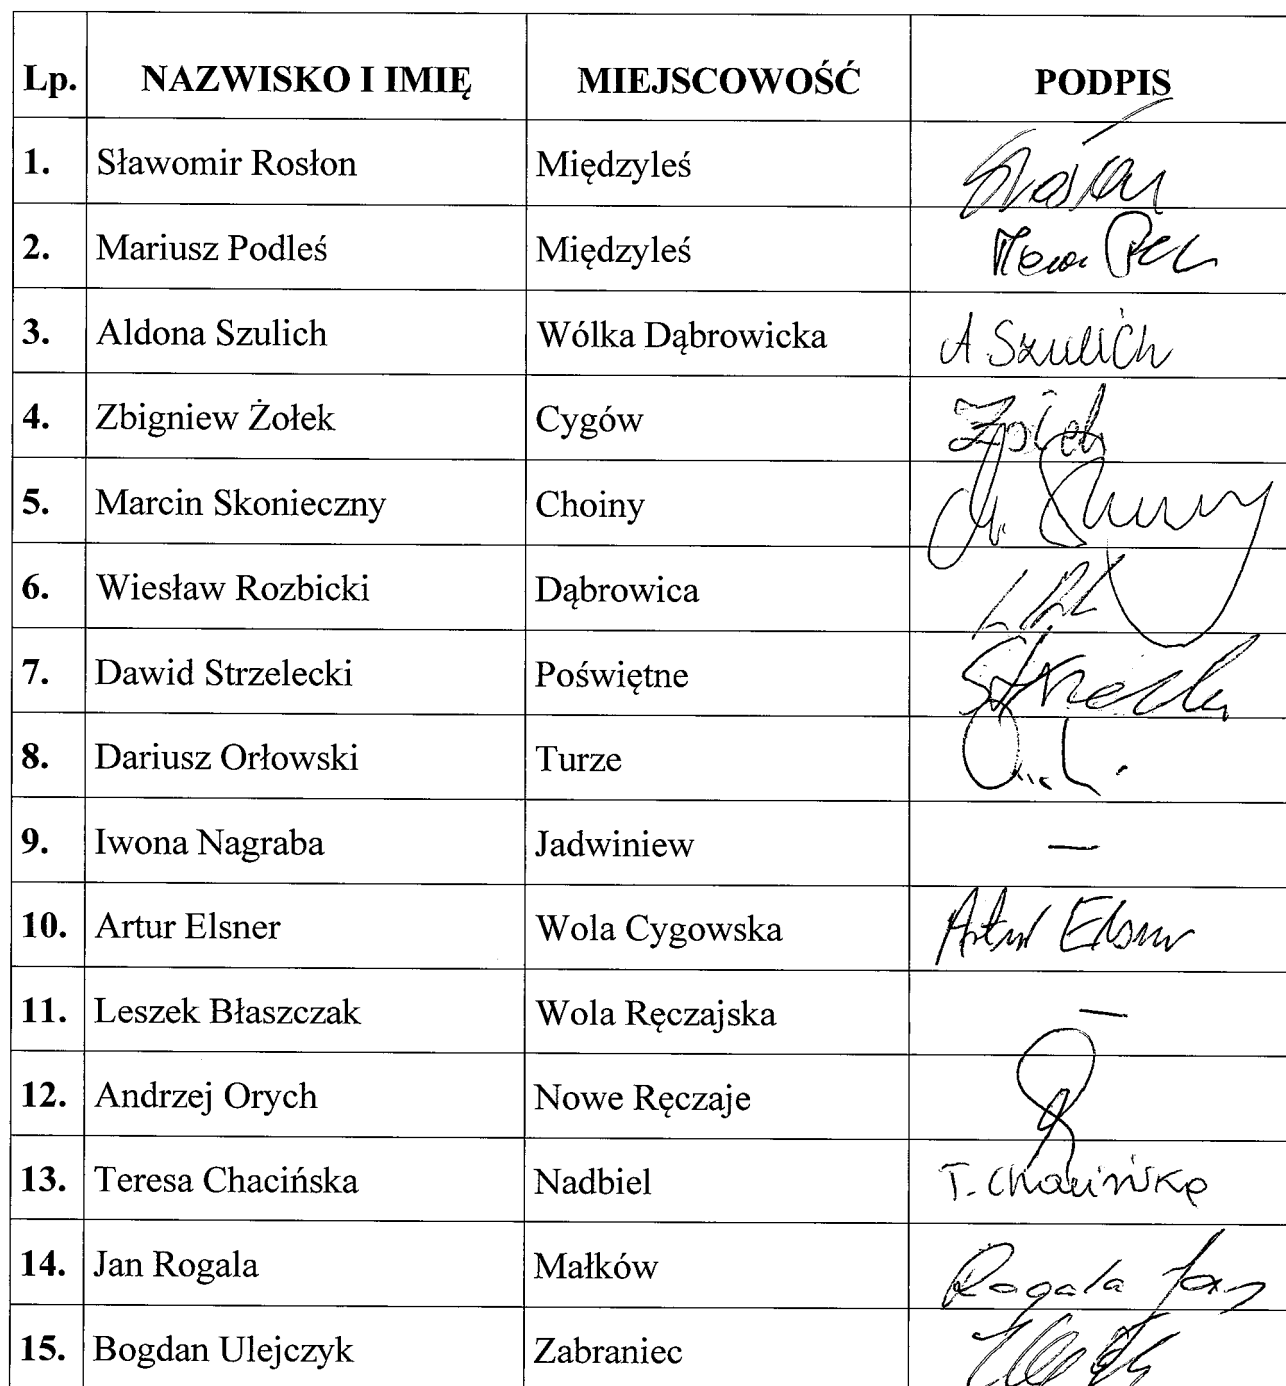 Lp. NAZWISKO I IMIĘ MIEJSCOWOŚĆ PODPIS
1. Sławomir Rosłon Międzyleś
2. Mariusz Podleś Międzyleś
3. Aldona Szulich Wólka Dąbrowicka A Szulich
4. Zbigniew Żołek Cygów
5. Marcin Skonieczny Choiny
6. Wiesław Rozbicki Dąbrowica
7. Dawid Strzelecki Poświętne
8. Dariusz Orłowski Turze
9. Iwona Nagraba Jadwiniew —
10. Artur Elsner Wola Cygowska Artur Elsner
11. Leszek Błaszczak Wola Ręczajska —
12. Andrzej Orych Nowe Ręczaje
13. Teresa Chacińska Nadbiel T. Chacińska
14. Jan Rogala Małków Rogala Jan
15. Bogdan Ulejczyk Zabraniec